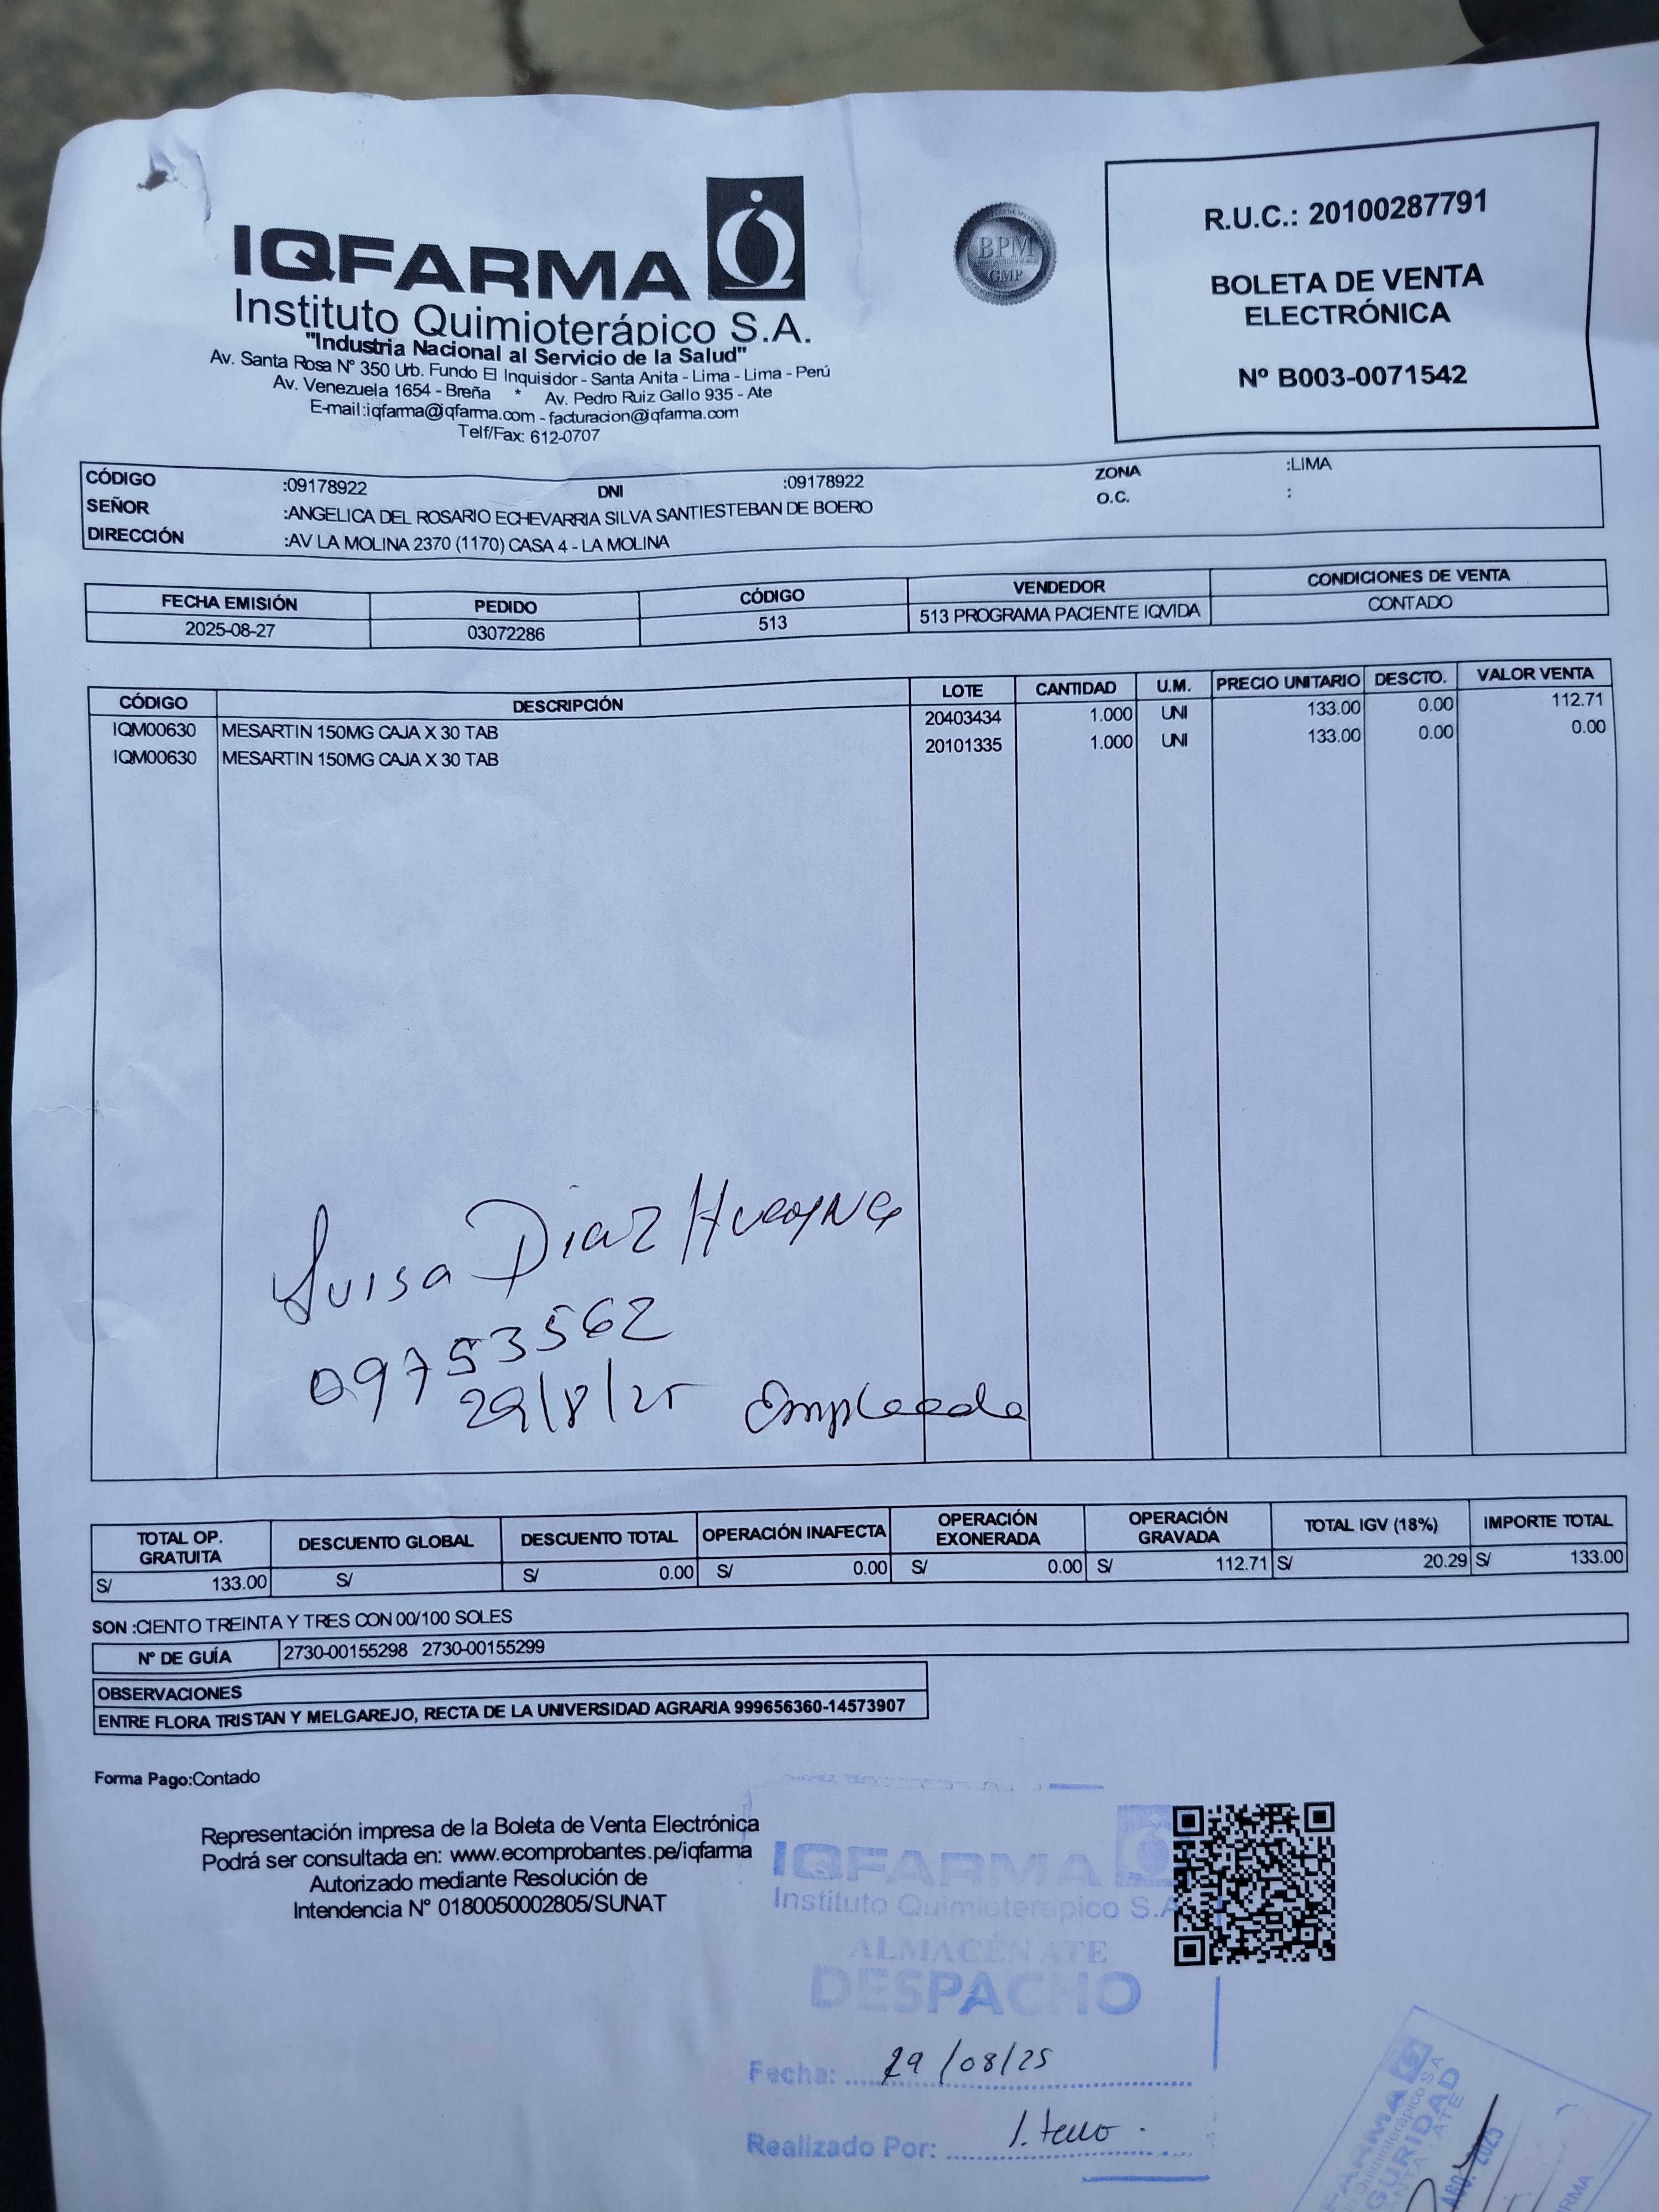 IQFARMA
Instituto Quimioterápico S.A.
"Industria Nacional al Servicio de la Salud"
Av. Santa Rosa Nº 350 Urb. Fundo El Inquisidor - Santa Anita - Lima - Lima - Perú
Av. Venezuela 1654 - Breña * Av. Pedro Ruiz Gallo 935 - Ate
E-mail:iqfarma@iqfarma.com - facturacion@iqfarma.com
Telf/Fax: 612-0707
BPM
GMP
R.U.C.: 20100287791
BOLETA DE VENTA
ELECTRÓNICA
Nº B003-0071542
CÓDIGO :09178922 DNI :09178922 ZONA :LIMA
SEÑOR :ANGELICA DEL ROSARIO ECHEVARRIA SILVA SANTIESTEBAN DE BOERO O.C. :
DIRECCIÓN :AV LA MOLINA 2370 (1170) CASA 4 - LA MOLINA
FECHA EMISIÓN PEDIDO CÓDIGO VENDEDOR CONDICIONES DE VENTA
2025-08-27 03072286 513 513 PROGRAMA PACIENTE IQVIDA CONTADO
CÓDIGO DESCRIPCIÓN LOTE CANTIDAD U.M. PRECIO UNITARIO DESCTO. VALOR VENTA
IQM00630 MESARTIN 150MG CAJA X 30 TAB 20403434 1.000 UNI 133.00 0.00 112.71
IQM00630 MESARTIN 150MG CAJA X 30 TAB 20101335 1.000 UNI 133.00 0.00 0.00
Luisa Diaz
09753562
29/8/25 Empleada
TOTAL OP. GRATUITA DESCUENTO GLOBAL DESCUENTO TOTAL OPERACIÓN INAFECTA OPERACIÓN EXONERADA OPERACIÓN GRAVADA TOTAL IGV (18%) IMPORTE TOTAL
S/ 133.00 S/ S/ 0.00 S/ 0.00 S/ 0.00 S/ 112.71 S/ 20.29 S/ 133.00
SON :CIENTO TREINTA Y TRES CON 00/100 SOLES
Nº DE GUÍA 2730-00155298 2730-00155299
OBSERVACIONES
ENTRE FLORA TRISTAN Y MELGAREJO, RECTA DE LA UNIVERSIDAD AGRARIA 999656360-14573907
Forma Pago:Contado
Representación impresa de la Boleta de Venta Electrónica
Podrá ser consultada en: www.ecomprobantes.pe/iqfarma
Autorizado mediante Resolución de
Intendencia Nº 0180050002805/SUNAT
IQFARMA
Instituto Quimioterápico S.A.
ALMACÉN ATE
DESPACHO
Fecha: 29/08/25
Realizado Por: